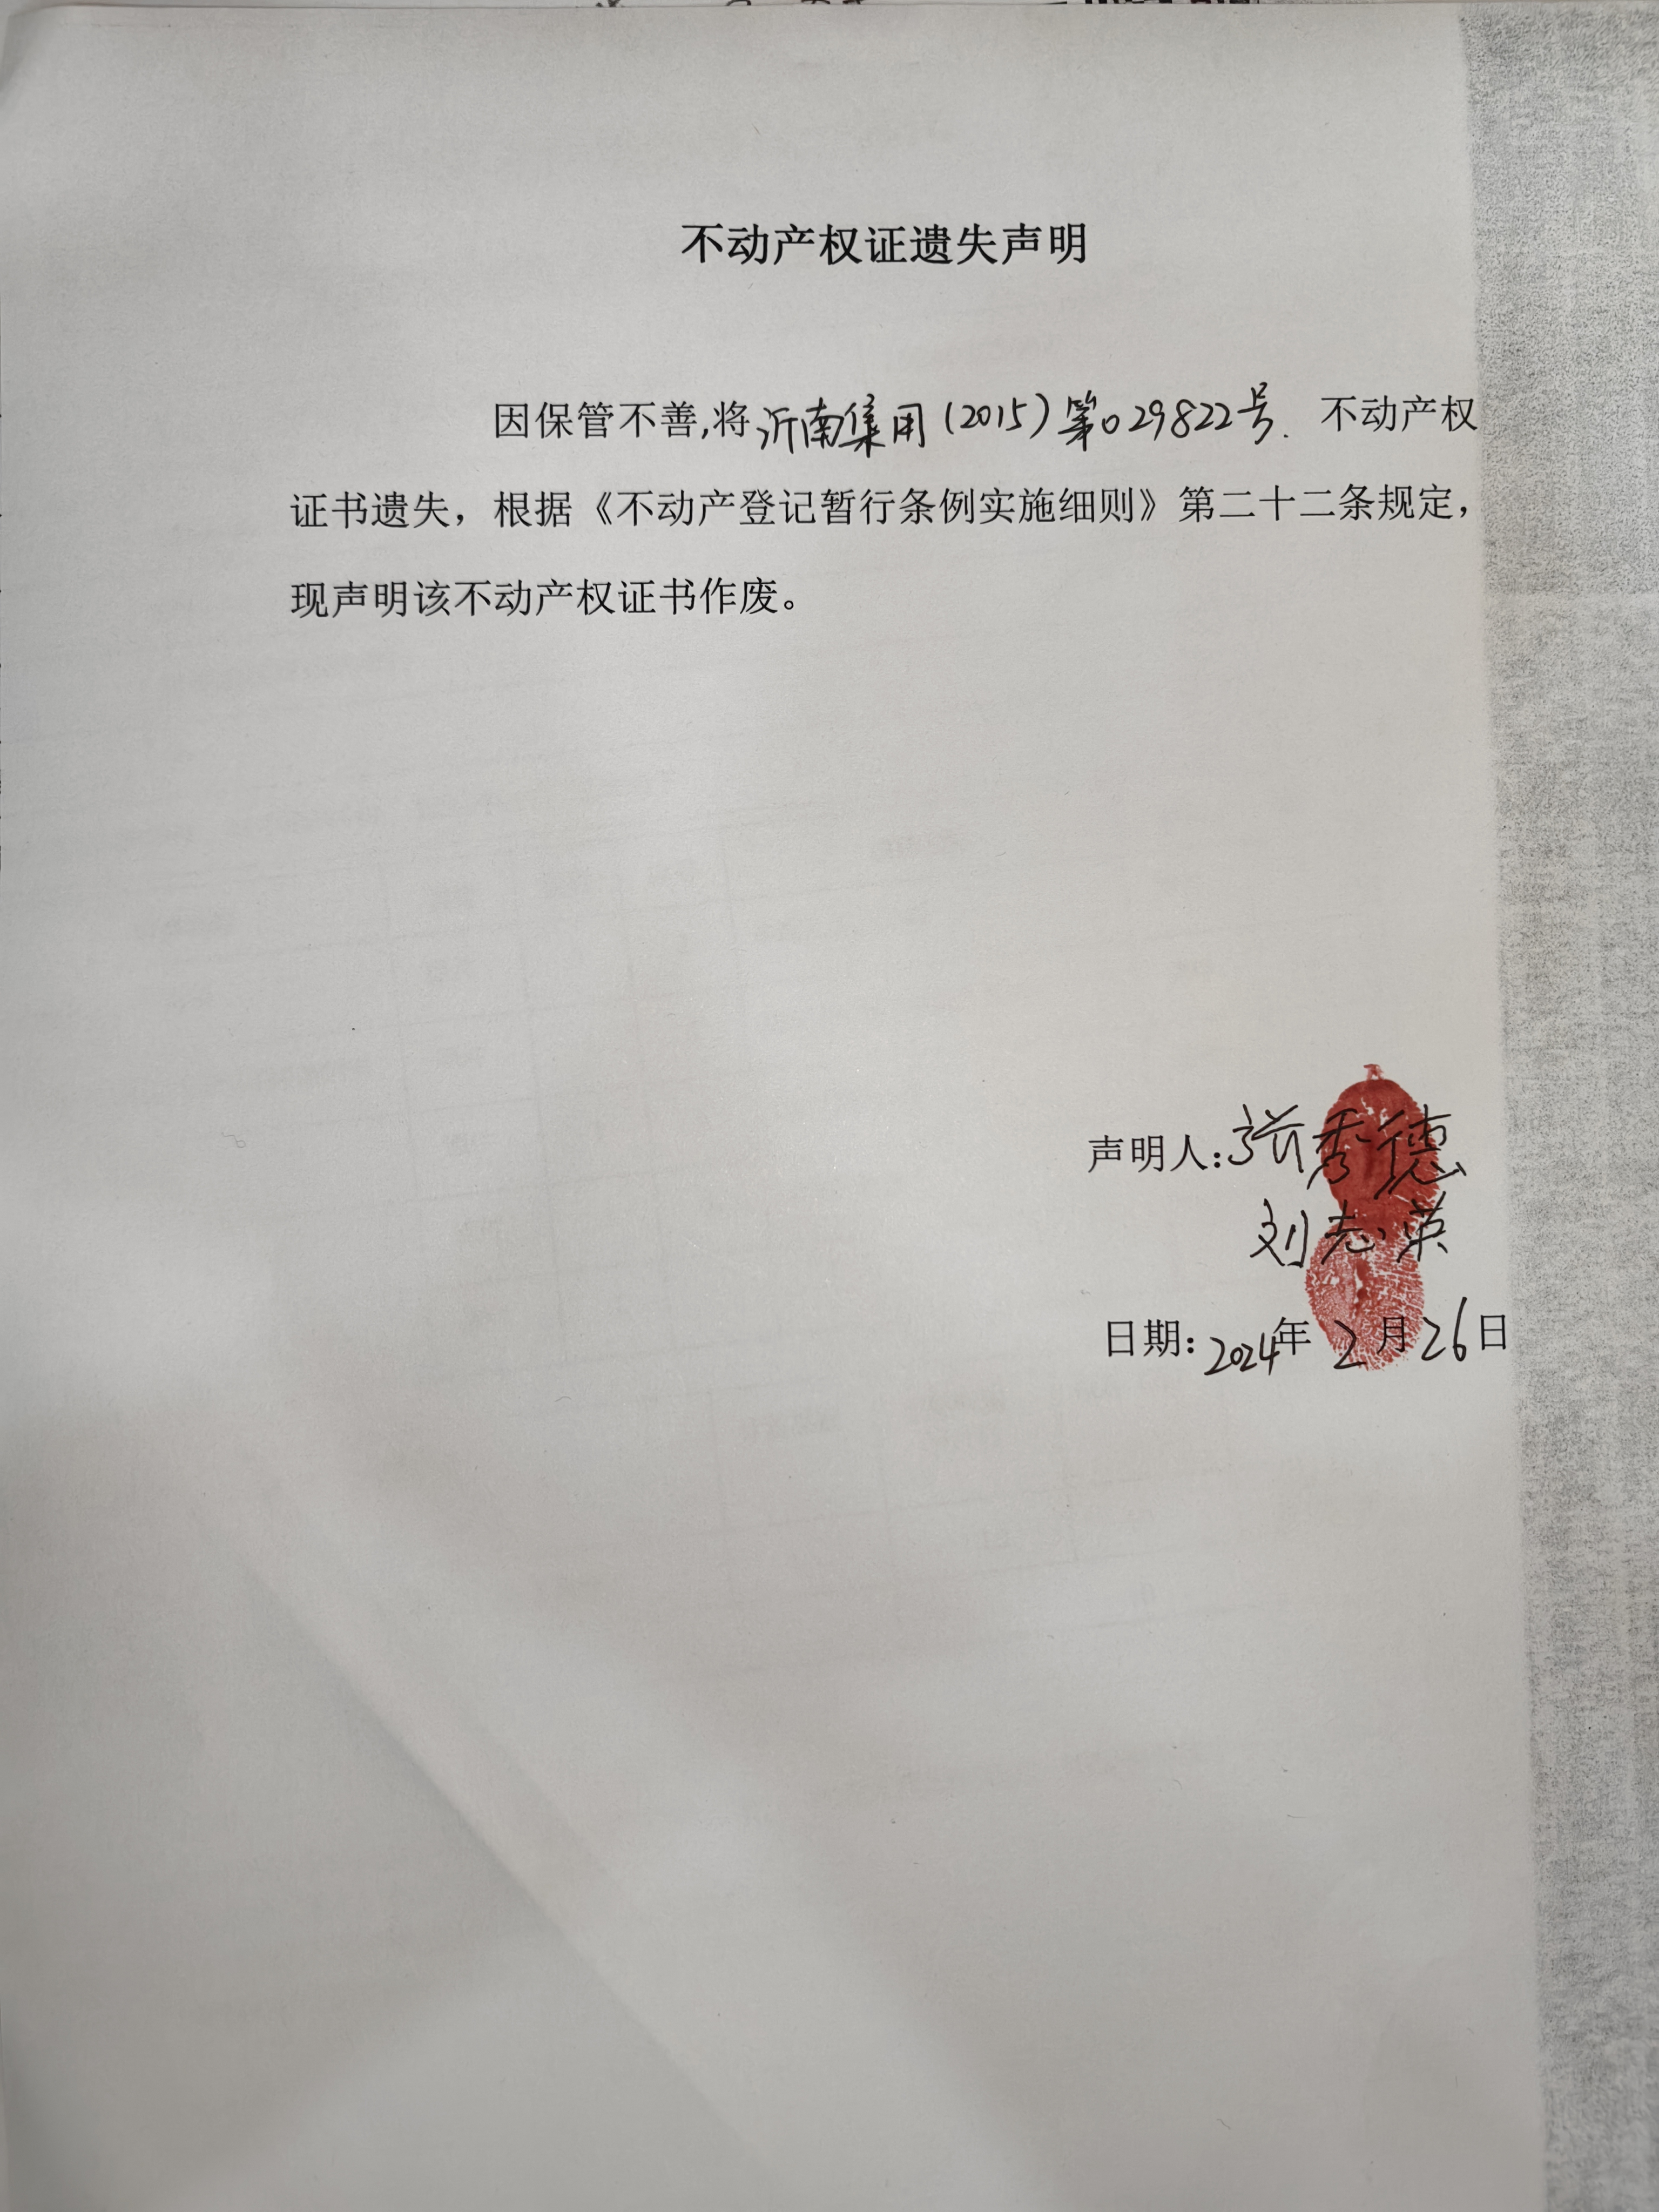 不动产权证遗失声明
因保管不善,将沂南集用(2015)第029822号. 不动产权
证书遗失，根据《不动产登记暂行条例实施细则》第二十二条规定，
现声明该不动产权证书作废。
声明人:张秀德
刘志英
日期:2024年2月26日